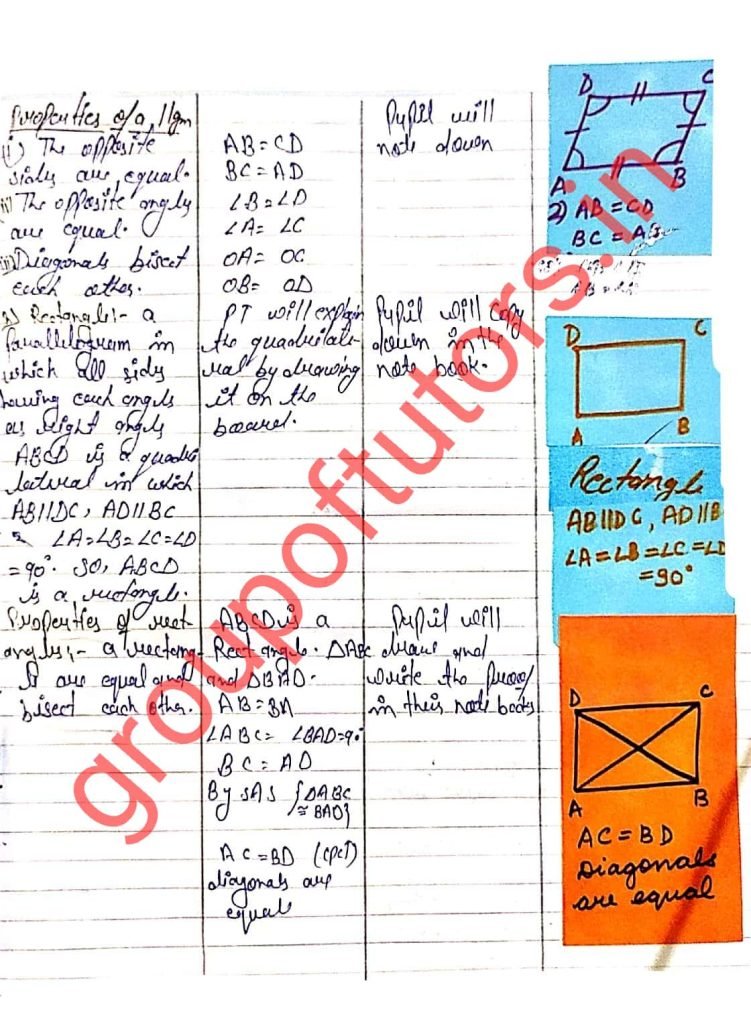 Properties of a ||gm
i) The opposite
sides are equal.
ii) The opposite angles
are equal.
iii) Diagonals bisect
each other.
Rectangle:- a
Parallelogram in
which all sides
having each angles
as right angles
ABCD is a quadri
lateral in which
AB||DC, AD||BC
∠A=∠B=∠C=∠D
= 90°. So, ABCD
is a rectangle.
Properties of rect-
angles:- a rectang-
le are equal and
bisect each other.
AB = CD
BC = AD
∠B = ∠D
∠A = ∠C
OA = OC
OB = OD
PT will explain
the quadrilate-
ral by drawing
it on the
board.
ABCD is a
Rectangle. ΔABC
and ΔBAD.
AB = BA
∠ABC = ∠BAD = 90°
BC = AD
By SAS {ΔABC
≅ BAD}
AC = BD (CPCT)
diagonals are
equal
Pupil will
note down
Pupil will copy
down in the
note book.
Pupil will
draw and
write the proof
in their note books
D C
A B
2) AB = CD
BC = A
D C
A B
Rectangle
AB||DC, AD||B
∠A = ∠B = ∠C = ∠D
= 90°
D C
A B
AC = BD
Diagonals
are equal
groupoftutors.in